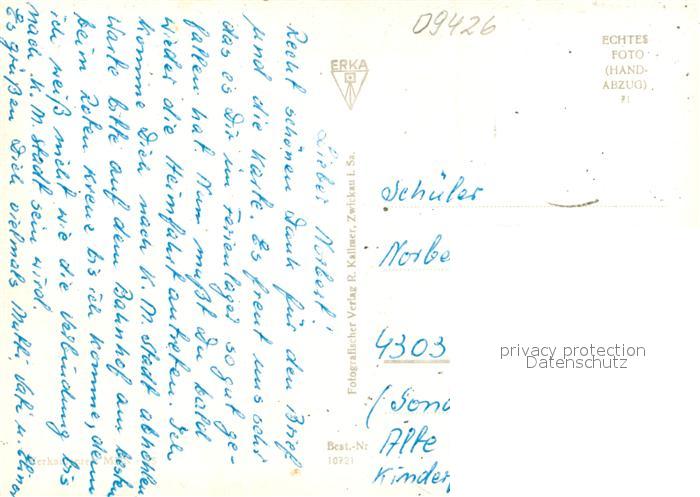 09426
ECHTES
FOTO
(HAND-
ABZUG)
ERKA
Lieber Norbert!
Recht schönen Dank für den Brief
und die Karte. Es freut uns sehr
das es Dir im Ferienlager so gut ge-
fallen hat. Nun mußt Du bald
wieder die Heimfahrt antreten. Ich
komme Dich nach K. M. Stadt abholen
Warte bitte auf dem Bahnhof am besten
beim Roten Kreuz bis ich komme, denn
ich weiß nicht wie die Verbindung bis
nach K. M. Stadt sein wird.
Es grüßen Dich vielmals Mutti, Vati u.
Fotografischer Verlag R. Kallmer, Zwickau i. Sa.
Best.-Nr
10721
Schüler
Norbe
4303
(Sond
Alte
Kinder
privacy protection
Datenschutz